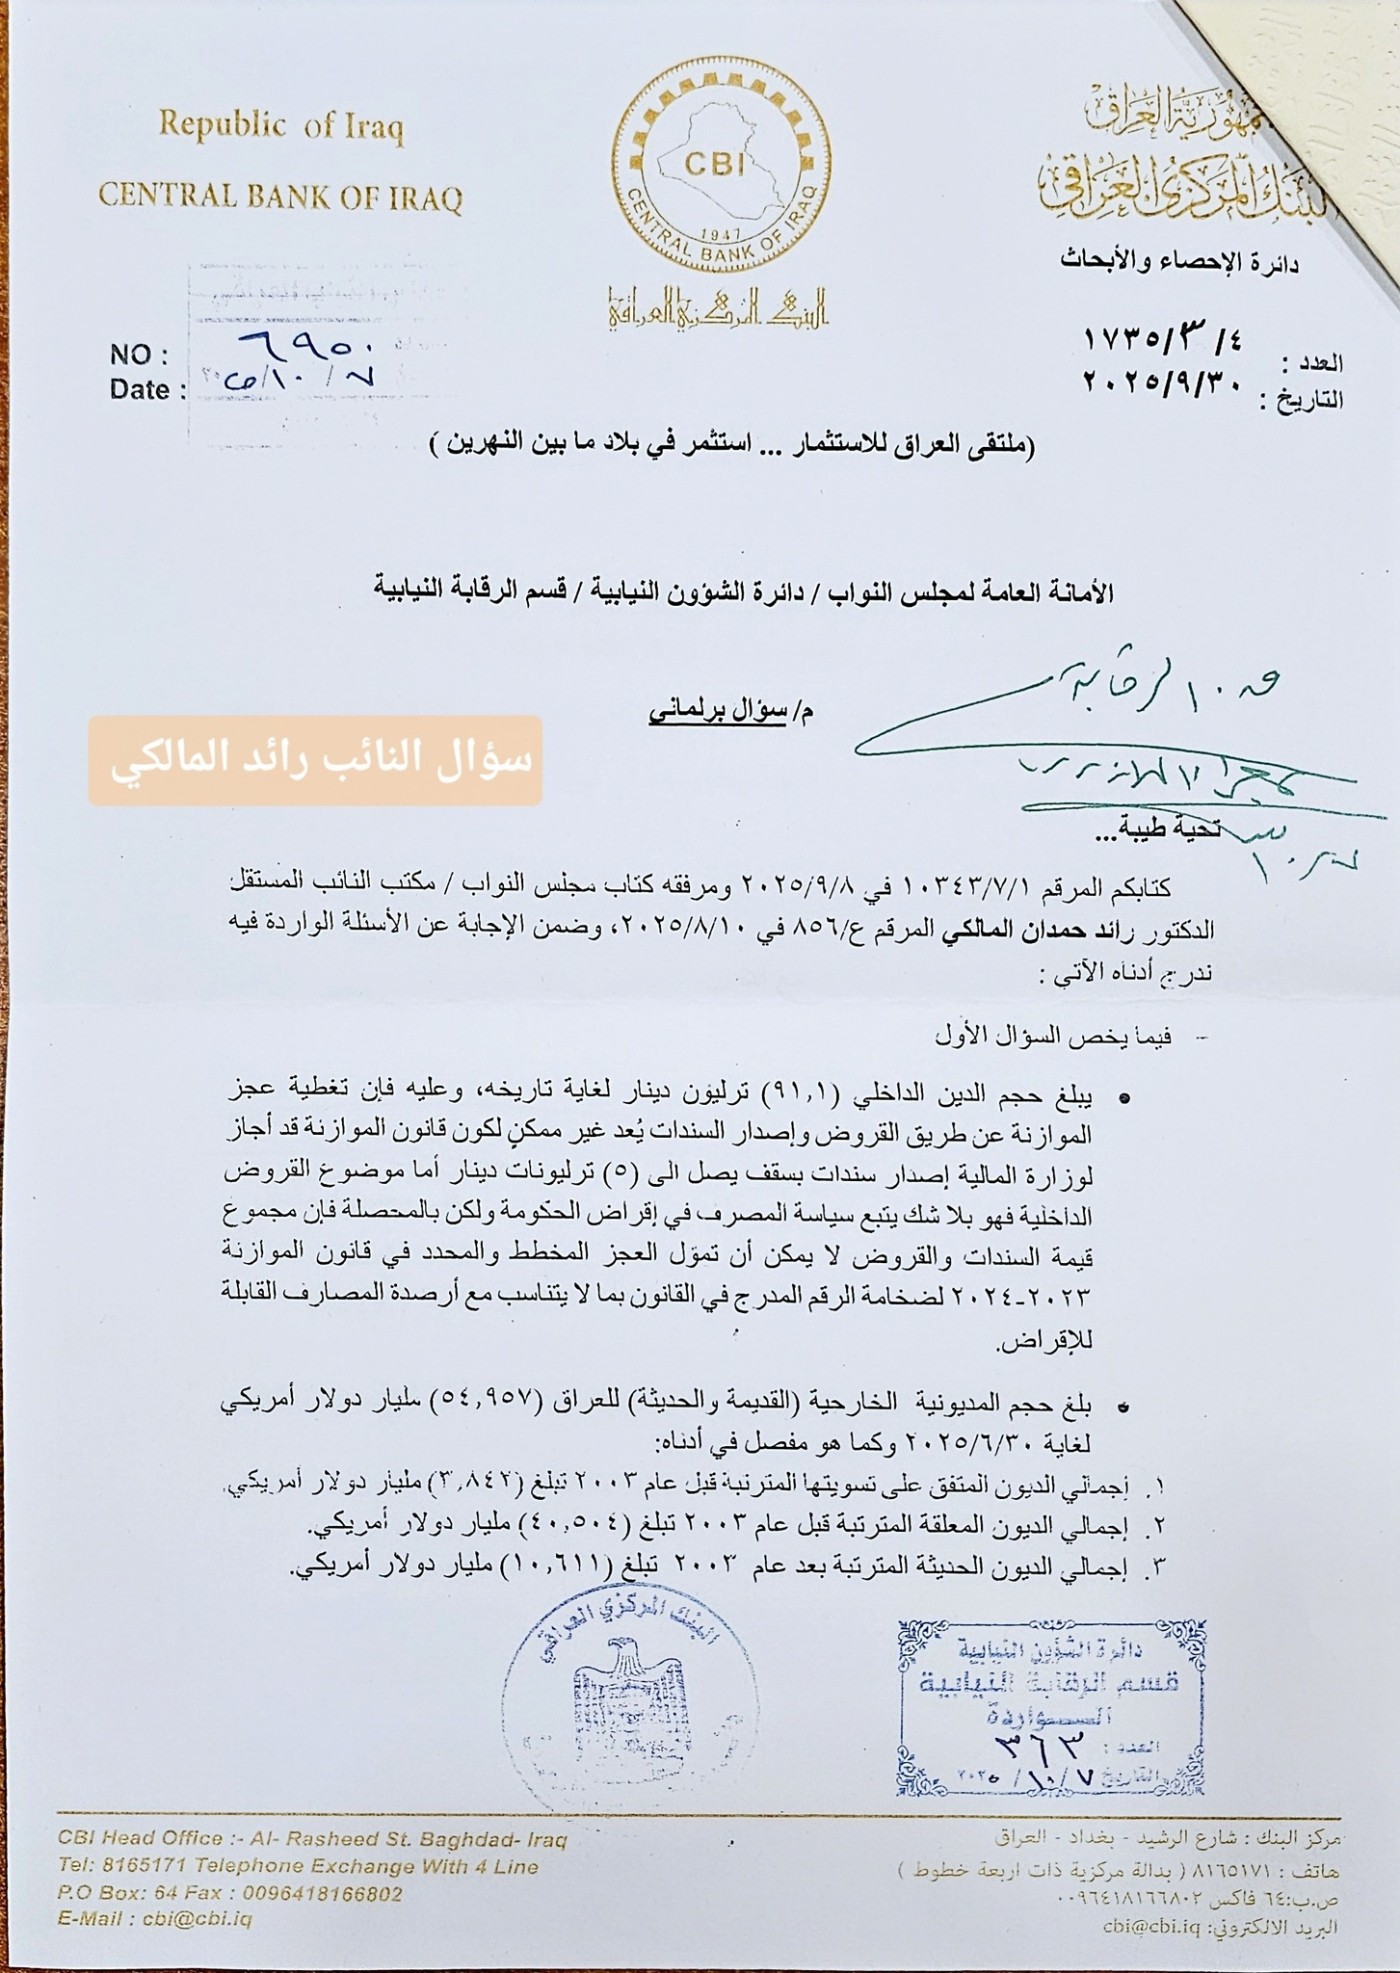 Republic of Iraq
CENTRAL BANK OF IRAQ
CBI
1947
CENTRAL BANK OF IRAQ
البنك المركزي العراقي
جمهورية العراق
البنك المركزي العراقي
دائرة الإحصاء والأبحاث
NO : ٦٩٥٠
Date :
العدد : ١٧٣٥/٣/٤
التاريخ : ٢٠٢٥/٩/٣٠
(ملتقى العراق للاستثمار ... استثمر في بلاد ما بين النهرين )
الأمانة العامة لمجلس النواب / دائرة الشؤون النيابية / قسم الرقابة النيابية
م/ سؤال برلماني
سؤال النائب رائد المالكي
تحية طيبة...
كتابكم المرقم ١٠٣٤٣/٧/١ في ٢٠٢٥/٩/٨ ومرفقه كتاب مجلس النواب / مكتب النائب المستقل
الدكتور رائد حمدان المالكي المرقم ع/٨٥٦ في ٢٠٢٥/٨/١٠، وضمن الإجابة عن الأسئلة الواردة فيه
ندرج أدناه الآتي :
- فيما يخص السؤال الأول
• يبلغ حجم الدين الداخلي (٩١,١) ترليون دينار لغاية تاريخه، وعليه فإن تغطية عجز
الموازنة عن طريق القروض وإصدار السندات يُعد غير ممكنٍ لكون قانون الموازنة قد أجاز
لوزارة المالية إصدار سندات بسقف يصل الى (٥) ترليونات دينار أما موضوع القروض
الداخلية فهو بلا شك يتبع سياسة المصرف في إقراض الحكومة ولكن بالمحصلة فإن مجموع
قيمة السندات والقروض لا يمكن أن تموّل العجز المخطط والمحدد في قانون الموازنة
٢٠٢٣-٢٠٢٤ لضخامة الرقم المدرج في القانون بما لا يتناسب مع أرصدة المصارف القابلة
للإقراض.
• بلغ حجم المديونية الخارجية (القديمة والحديثة) للعراق (٥٤,٩٥٧) مليار دولار أمريكي
لغاية ٢٠٢٥/٦/٣٠ وكما هو مفصل في أدناه:
١. إجمالي الديون المتفق على تسويتها المترتبة قبل عام ٢٠٠٣ تبلغ (٣,٨٤٢) مليار دولار أمريكي.
٢. إجمالي الديون المعلقة المترتبة قبل عام ٢٠٠٣ تبلغ (٤٠,٥٠٤) مليار دولار أمريكي.
٣. إجمالي الديون الحديثة المترتبة بعد عام ٢٠٠٣ تبلغ (١٠,٦١١) مليار دولار أمريكي.
البنك المركزي العراقي
دائرة الشؤون النيابية
قسم الرقابة النيابية
الواردة
العدد : ٣٦٣
التاريخ ٢٠٢٥/١٠/٧
CBI Head Office :- Al- Rasheed St. Baghdad- Iraq
Tel: 8165171 Telephone Exchange With 4 Line
P.O Box: 64 Fax : 0096418166802
E-Mail : cbi@cbi.iq
مركز البنك : شارع الرشيد - بغداد - العراق
هاتف : ٨١٦٥١٧١ ( بدالة مركزية ذات اربعة خطوط )
ص.ب:٦٤ فاكس ٠٠٩٦٤١٨١٦٦٨٠٢
البريد الالكتروني: cbi@cbi.iq